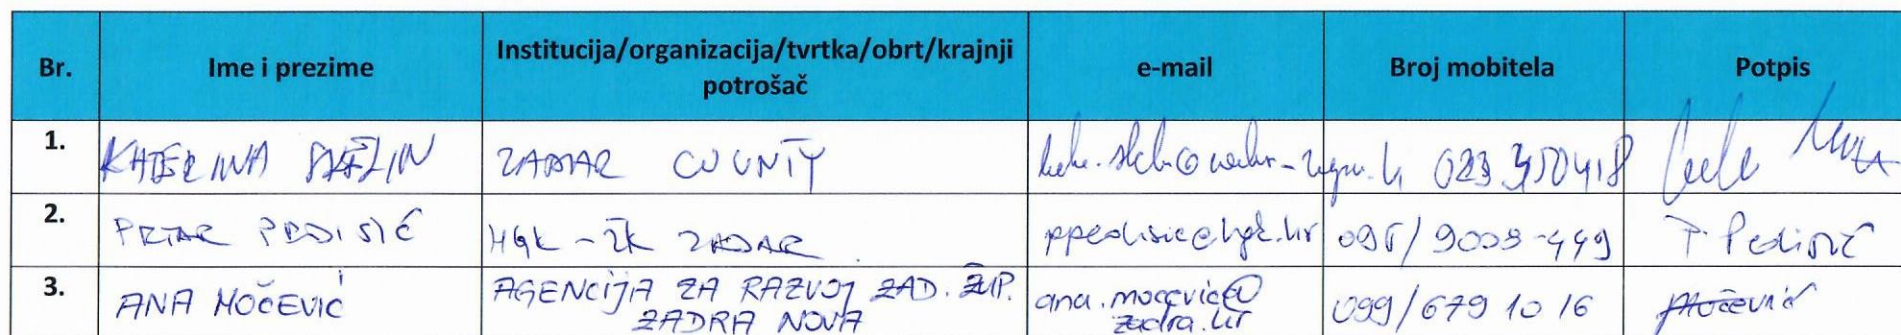 Br. Ime i prezime Institucija/organizacija/tvrtka/obrt/krajnji potrošač e-mail Broj mobitela Potpis
1. KATERINA ZADAR COUNTY 023 350418
2. PETAR PEDISIĆ HGK - ŽK ZADAR ppedisic@hgk.hr /9009-449 P. Pedisić
3. ANA MOČEVIĆ AGENCIJA ZA RAZVOJ ZAD. ŽUP. ana.mocevic@ 099/679 10 16 Močević
ZADRA NOVA zadra.hr